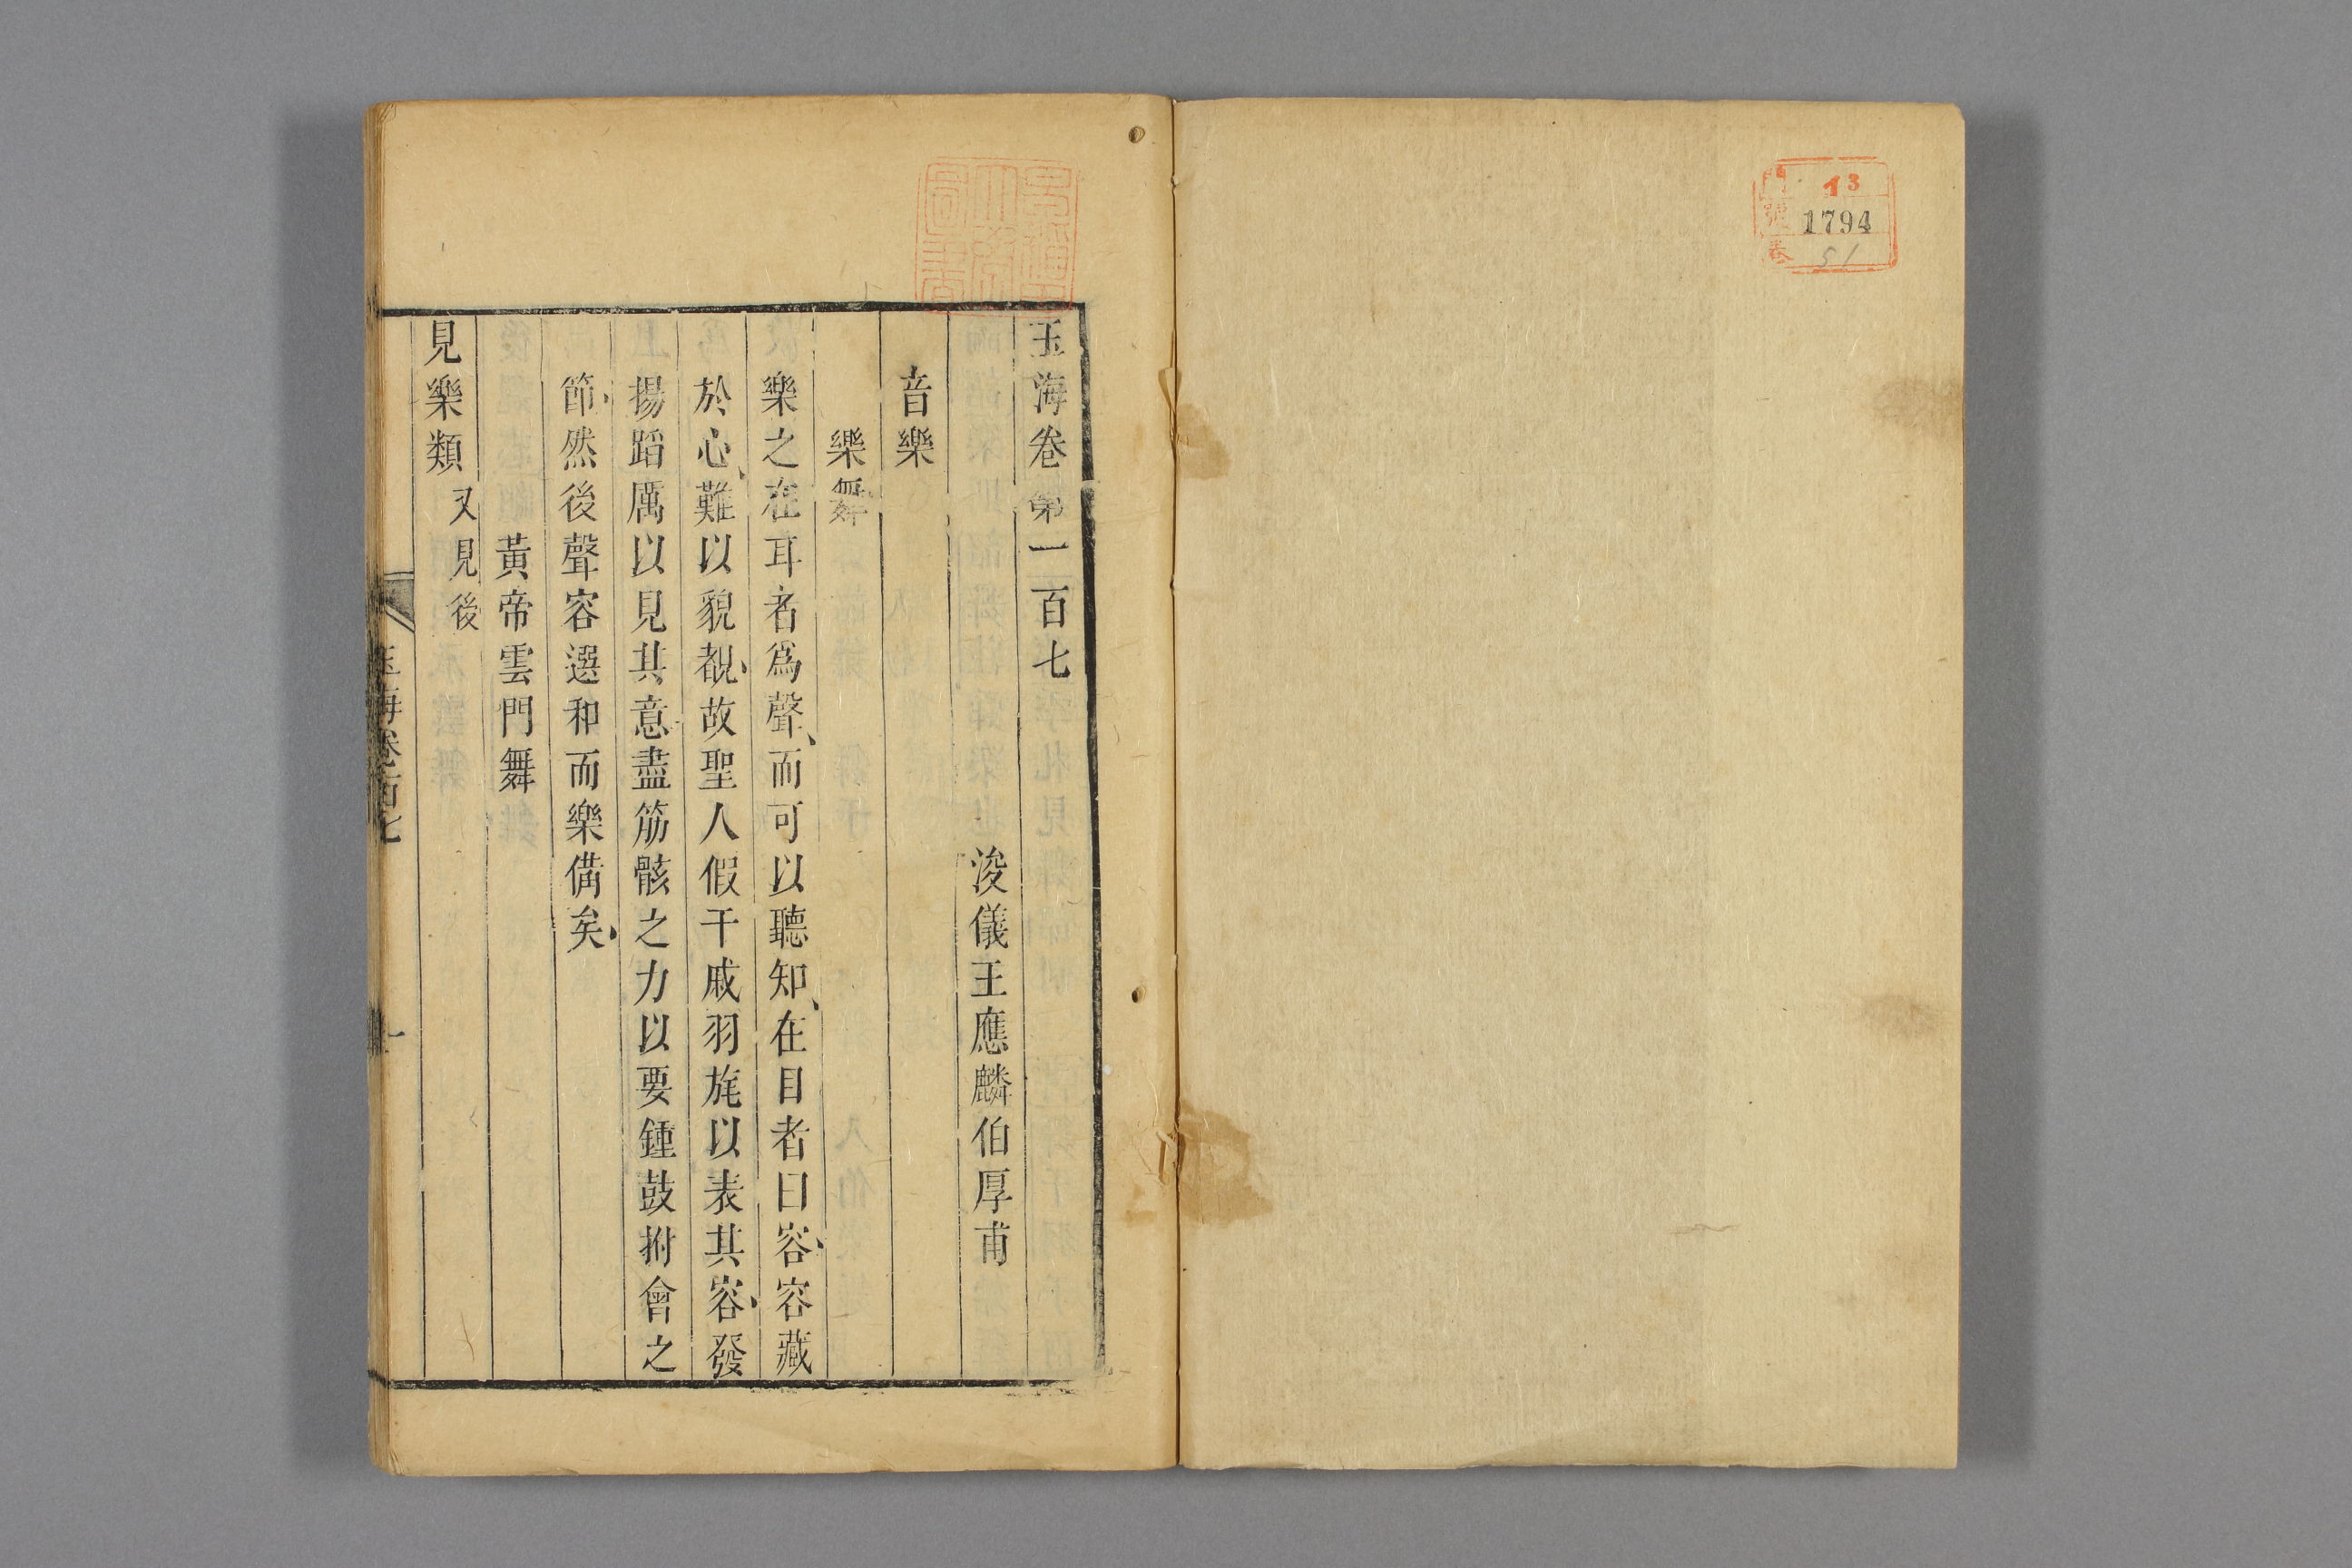 門 13
號 1794
卷 51
玉海卷第一百七
浚儀王應麟伯厚甫
音樂
樂舞
樂之在耳者爲聲、而可以聽知、在目者曰容、容藏
於心、難以貌覩、故聖人假干戚羽旄以表其容、發
揚蹈厲以見其意、盡筋骸之力以要鍾鼓拊會之
節、然後聲容選和而樂備矣、
黃帝雲門舞
見樂類又見後
玉海卷百七
一